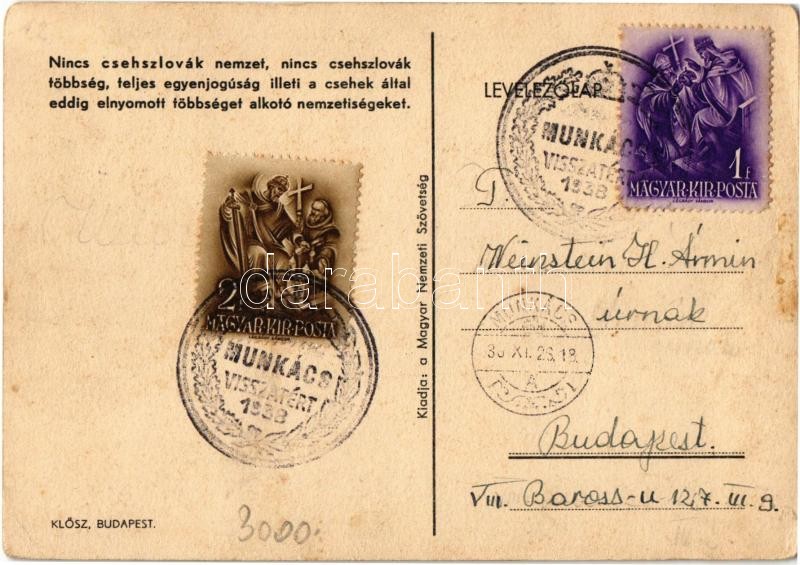 Nincs csehszlovák nemzet, nincs csehszlovák
többség, teljes egyenjogúság illeti a csehek által
eddig elnyomott többséget alkotó nemzetiségeket.
2
MAGYAR·KIR·POSTA
MUNKÁCS
VISSZATÉRT
1938
KLŐSZ, BUDAPEST.
3000.
Kiadja: a Magyar Nemzeti Szövetség
LEVELEZŐLAP
MUNKÁCS
VISSZATÉRT
1938
1f
MAGYAR·KIR·POSTA
LÉGRÁDY SÁNDOR
T.
Weinstein H. Ármin
úrnak
MUNKÁCS
A
Budapest.
VIII. Baross-u 127. III. 9.
darabanth.com